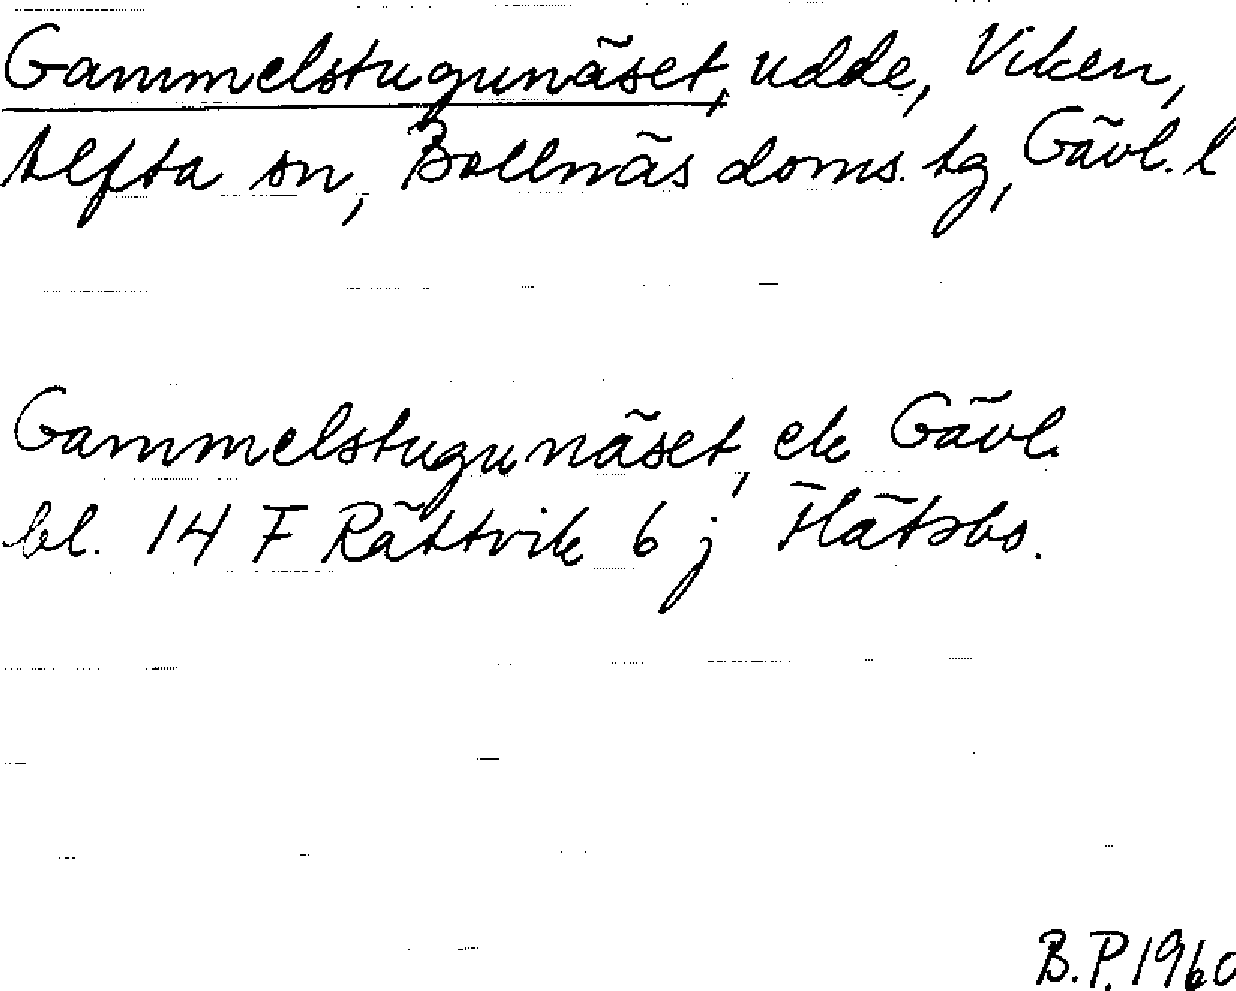 Gammelstugunäset, udde, Viken,
Alfta sn, Bollnäs doms. tg, Gävl. l
Gammelstugunäset, ek Gävl.
bl. 14 F Rättvik 6 j Flätsbo.
B.P. 1960